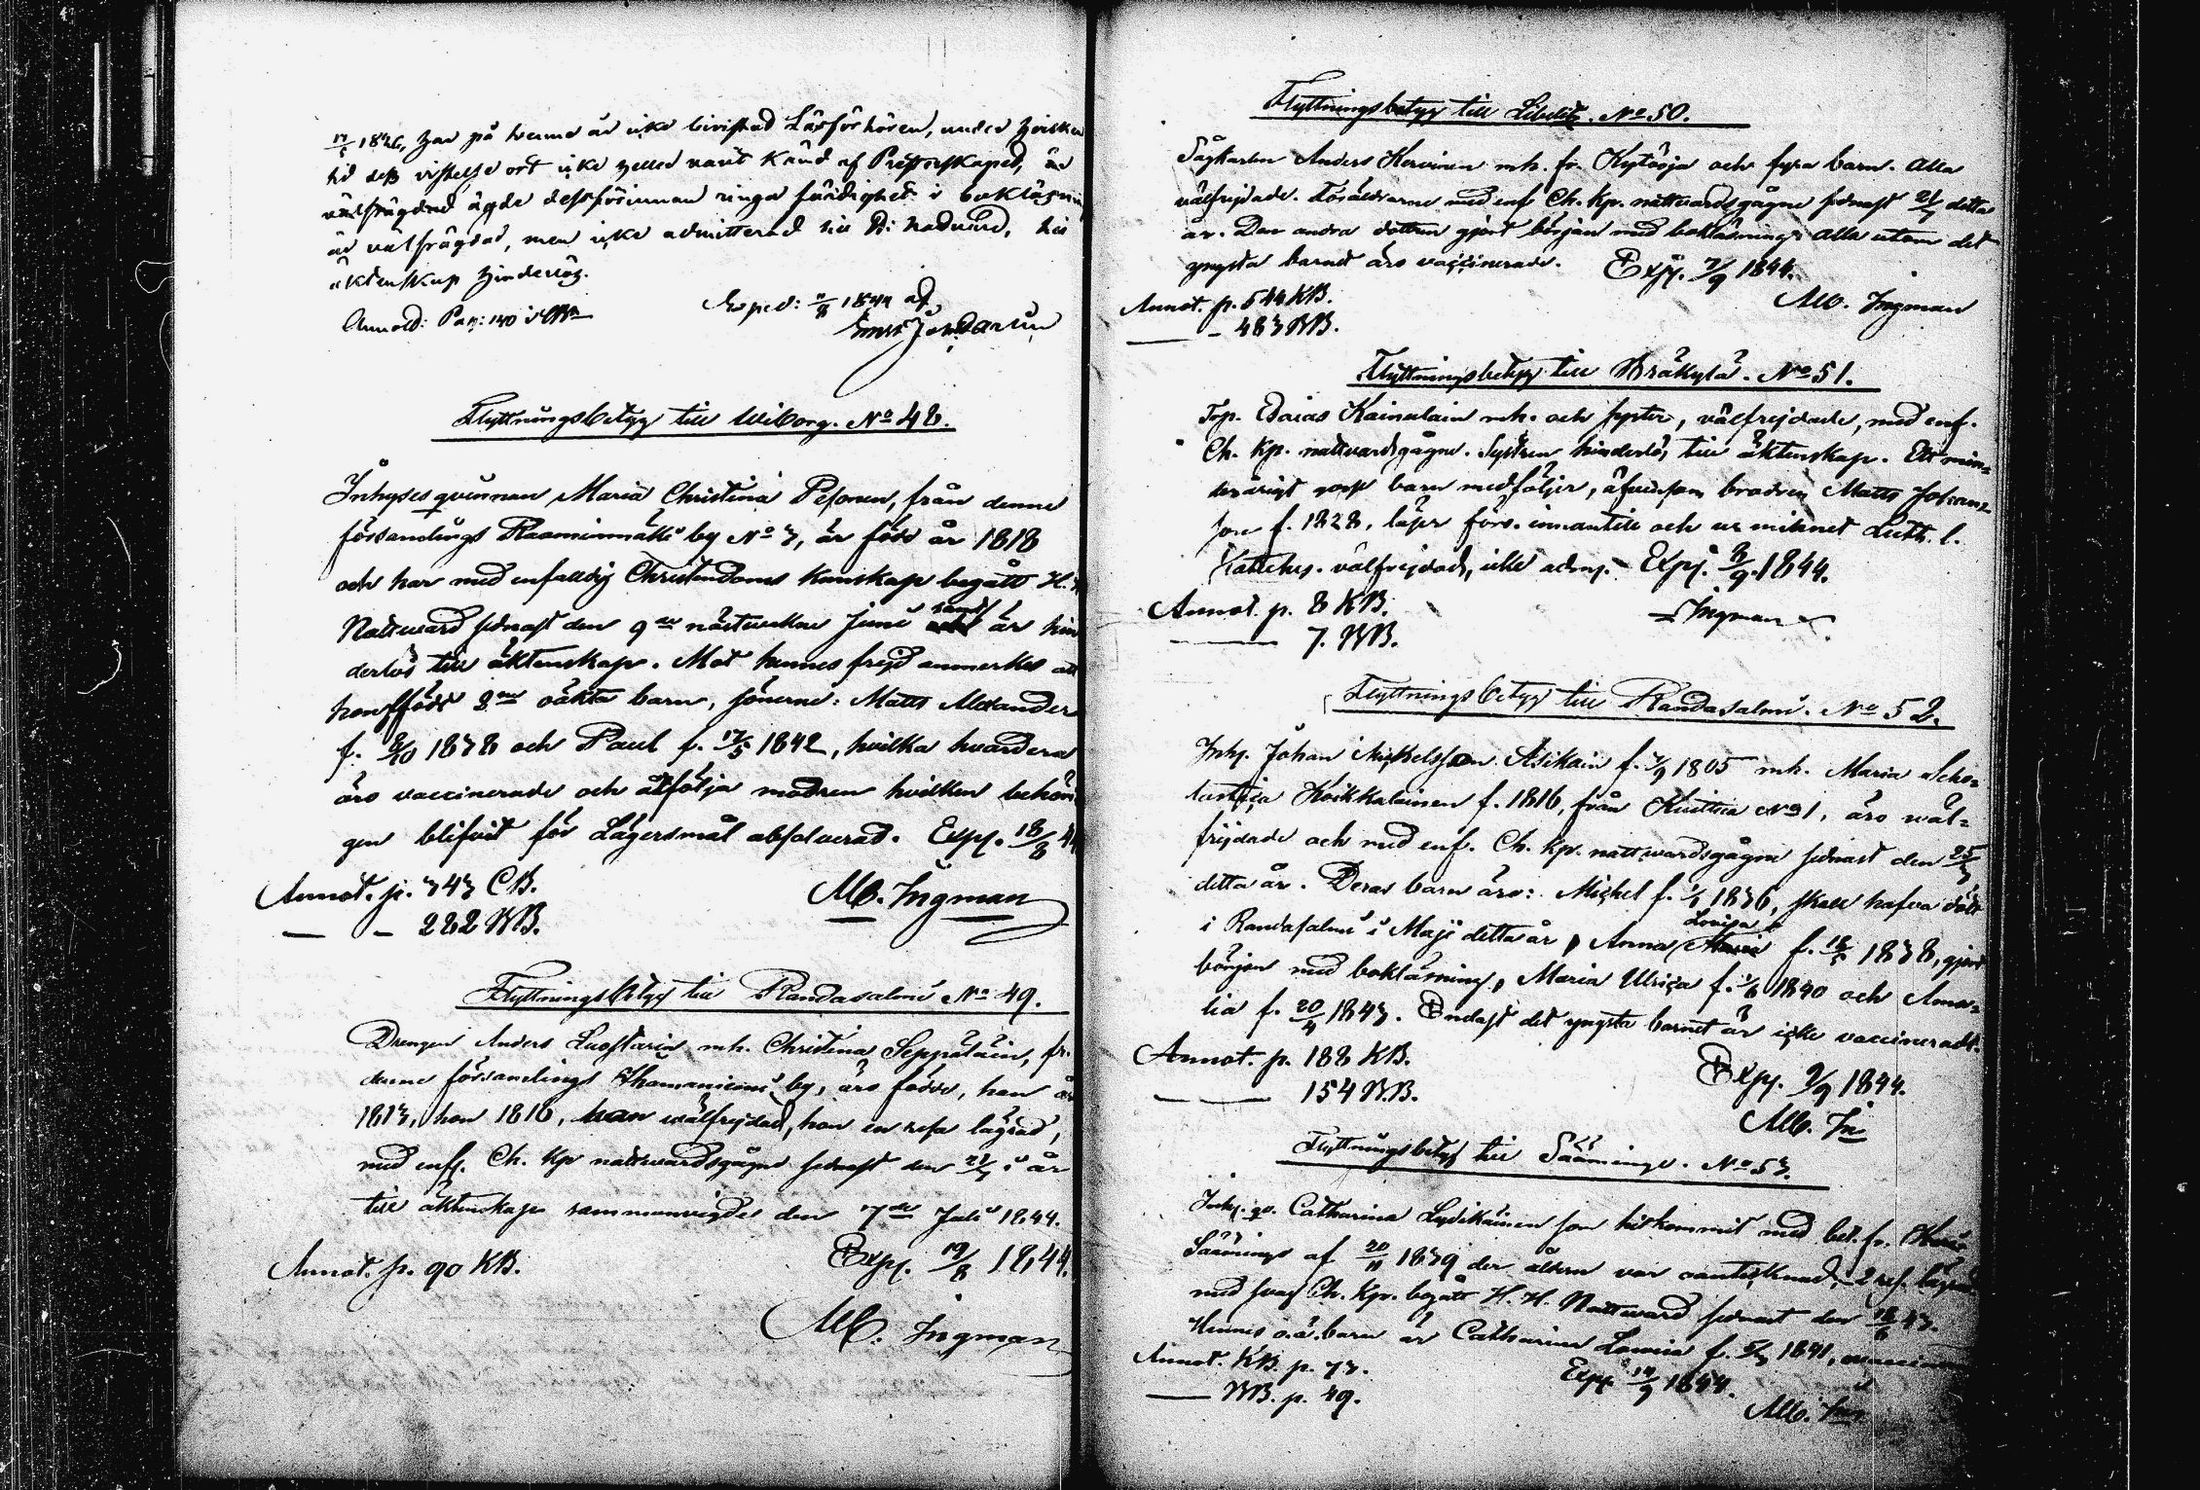 17/5 1826, har på denne år icke bivistad Läsförhören, under hvilken
tid dess vistelse ort icke heller varit känd af Presterskapet, är
välfrägdad ägde dessförinnan ringa färdighet i bokläsning
är välfrägdad, men icke admitterad till H: Nadward, till
äktenskap hinderlös.
Annoterad: Pag: 140 i
Exped: 11/8 1844 af
Flyttningsbetyg till Wiborg. No 48.
Inhysesqvinnan Maria Christina Pesonen, från denne
församlings Raaminmäki by No 3, är född år 1818
och har med enfaldig Christendoms kunskap begått H. H.
Nattward sednast den 9de nästvekne Juni samt är hin
derlös till äktenskap. Mot hennes frejd anmerkes att
hon födt 2ne oäkta barn, sönerne: Matts Alexander
f. 8/10 1838 och Paul f. 17/5 1842, hvilka hvardera
äro vaccinerade och åtfölja modren hvilken behöri
gen blifvit för Lägersmål absolverad. Exp. 18/8 44
Annot. p. 343 CB.
— — 222 WB.
Mb. Ingman
Flyttningsbetyg till Randasalmi No 49.
Drengen Anders Luostarin m.h. Christina Seppäläin, fr.
denne församlings Thomaniemi by, äro födde, han år
1813, hon 1816, han wälfrejdad, hon en resa lägrad,
med enf. Ch. Kp nattwardsgågne sednast den 21/4 i år
till äktenskap sammanvigde den 7de Juli 1844.
Annot. p. 90 KB.
Exp. 19/8 1844.
Mb. Ingman
Flyttningsbetyg till Libelitz. No 50.
Sågkarlen Anders Hervinen m.h. fr. Kytöoja och fyra barn. Alla
välfrejdade. Föräldrarne med enf Ch. Kp. nattwardsgågne sednast 21/4 detta
år. Den andra dottren gjort början med bokläsning. Alla utom det
yngsta barnet äro vaccinerade. Exp. 7/9 1844.
Mb. Ingman
Annot. p. 544 KB.
— — 483 WB.
Flyttningsbetyg till Bräkylä. No 51.
Torp. Esaias Kainulain m.h. och syster, välfrejdade, med enf.
Ch. Kp. nattvardsgågne. Systren hinderlös till äktenskap. Ett min-
derårigt barn medföljer, äfvensom brodren Matts Johans-
son f. 1828, läser förs. innantill och ur minnet Luth. l.
Kateches. välfrejdad, icke adm. Exp. 8/9 1844.
Annot. p. 8 KB.
Ingman
— 7. WB.
Flyttningsbetyg till Randasalmi. No 52.
Inhy. Johan Mickelsson Asikain f. 7/9 1805 m.h. Maria Scho-
lastica Koikkalainen f. 1816, från Kuittia No 1, äro wäl-
frejdade och med enf. Ch. kp. nattwardsgågne sednast den 25/3
detta år. Deras barn äro: Michel f. 1/1 1836, skall hafva dödt
i Randasalmi i Maji detta år, Anna Lovisa f. 18/5 1838, gjort
början med bokläsning, Maria Ulrica f. 1/6 1840 och Ama-
lia f. 20/4 1843. Endast det yngsta barnet är icke vaccineradt.
Annot. p. 188 KB.
Exp. 9/9 1844.
— 154 WB.
Mb. In
Flyttningsbetyg till Sääminge. No 53.
Inhy. qv. Catharina Lydikäinen som hitkommit med bet. fr.
Sääminge af 20/11 1839 der åldern var oantecknad, 2 res. lägrad
med svag Ch. Kp. begått H. H. Nattward sednast den 18/6 43.
Hennes o.ä. barn är Catharina Lowisa f. 5/3 1841, vaccinerad
Annot. KB. p. 73.
Exp. 14/9 1844.
— WB. p. 49.
Mb. In